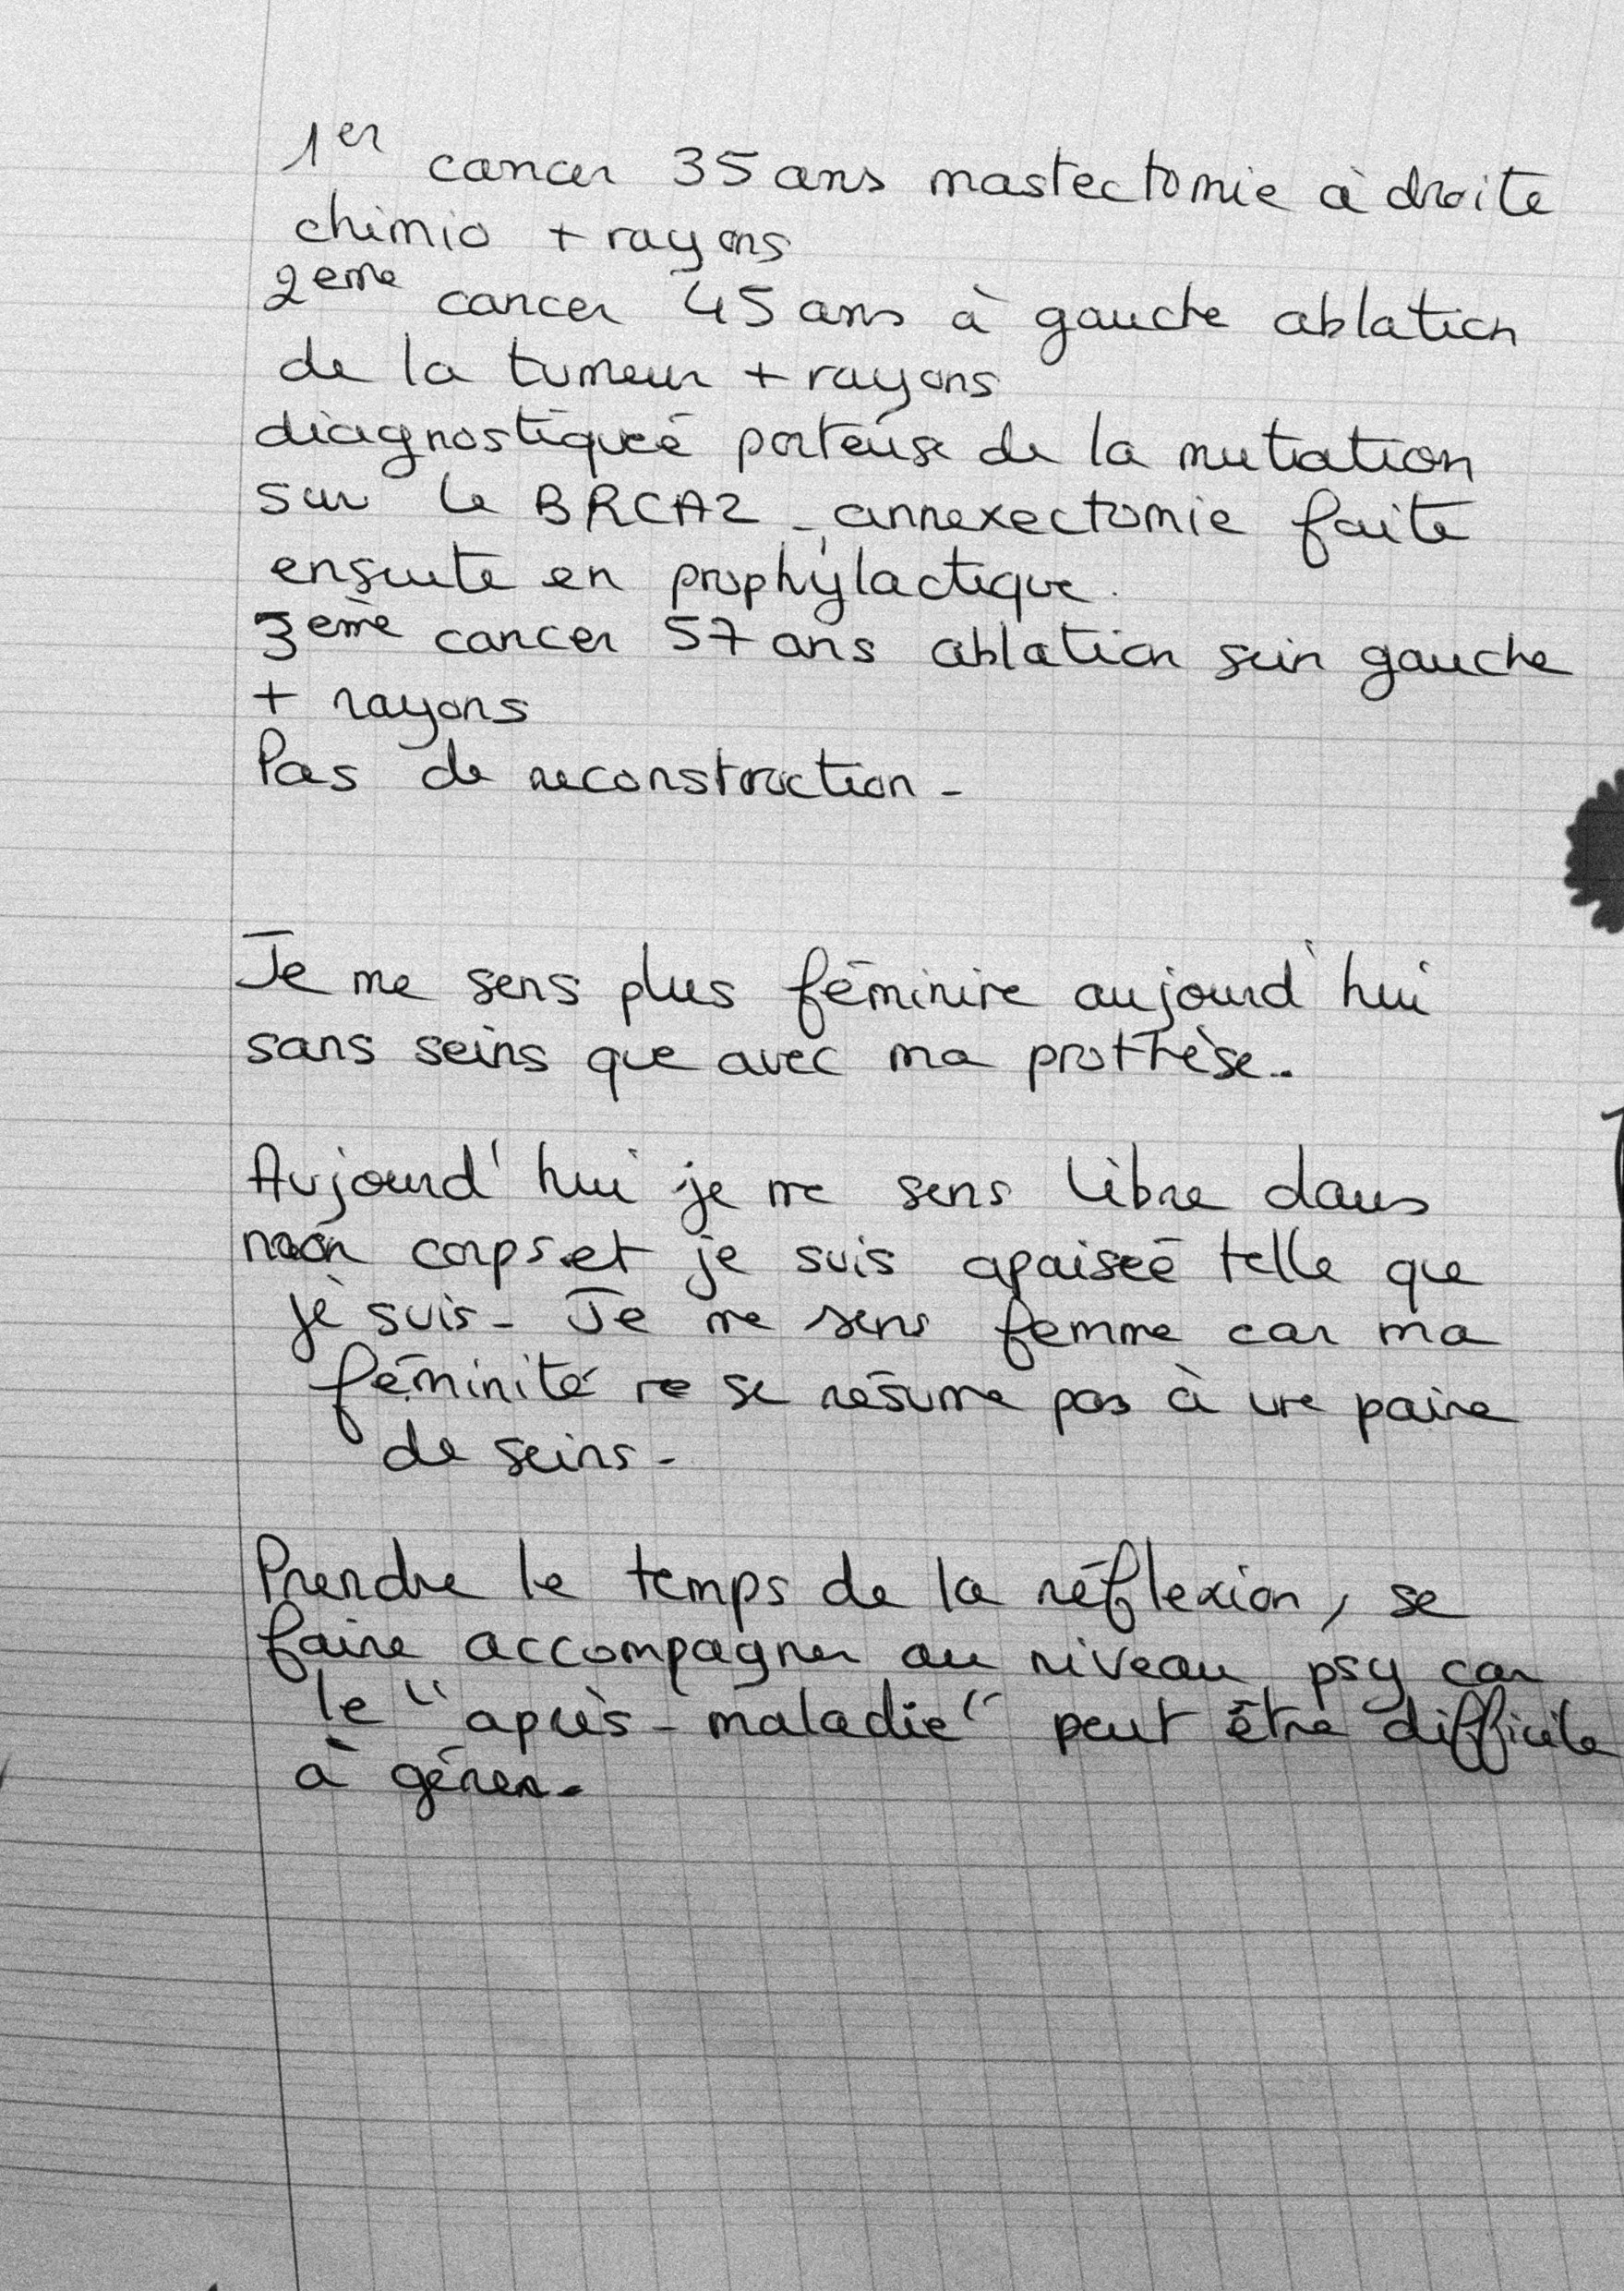 1er cancer 35 ans mastectomie à droite
chimio + rayons
2eme cancer 45 ans à gauche ablation
de la tumeur + rayons
diagnostiqueé porteuse de la mutation
sur le BRCA2 - annexectomie faite
ensuite en prophylactique.
3eme cancer 57 ans ablation sein gauche
+ rayons
Pas de reconstruction -
Je me sens plus féminine aujourd'hui
sans seins que avec ma prothèse..
Aujourd'hui je me sens libre dans
mon corps et je suis apaiseé telle que
je suis - Je me sens femme car ma
féminité ne se résume pas à une paire
de seins -
Prendre le temps de la réflexion, se
faire accompagner au niveau psy car
le "après-maladie" peut être difficile
à gérer -